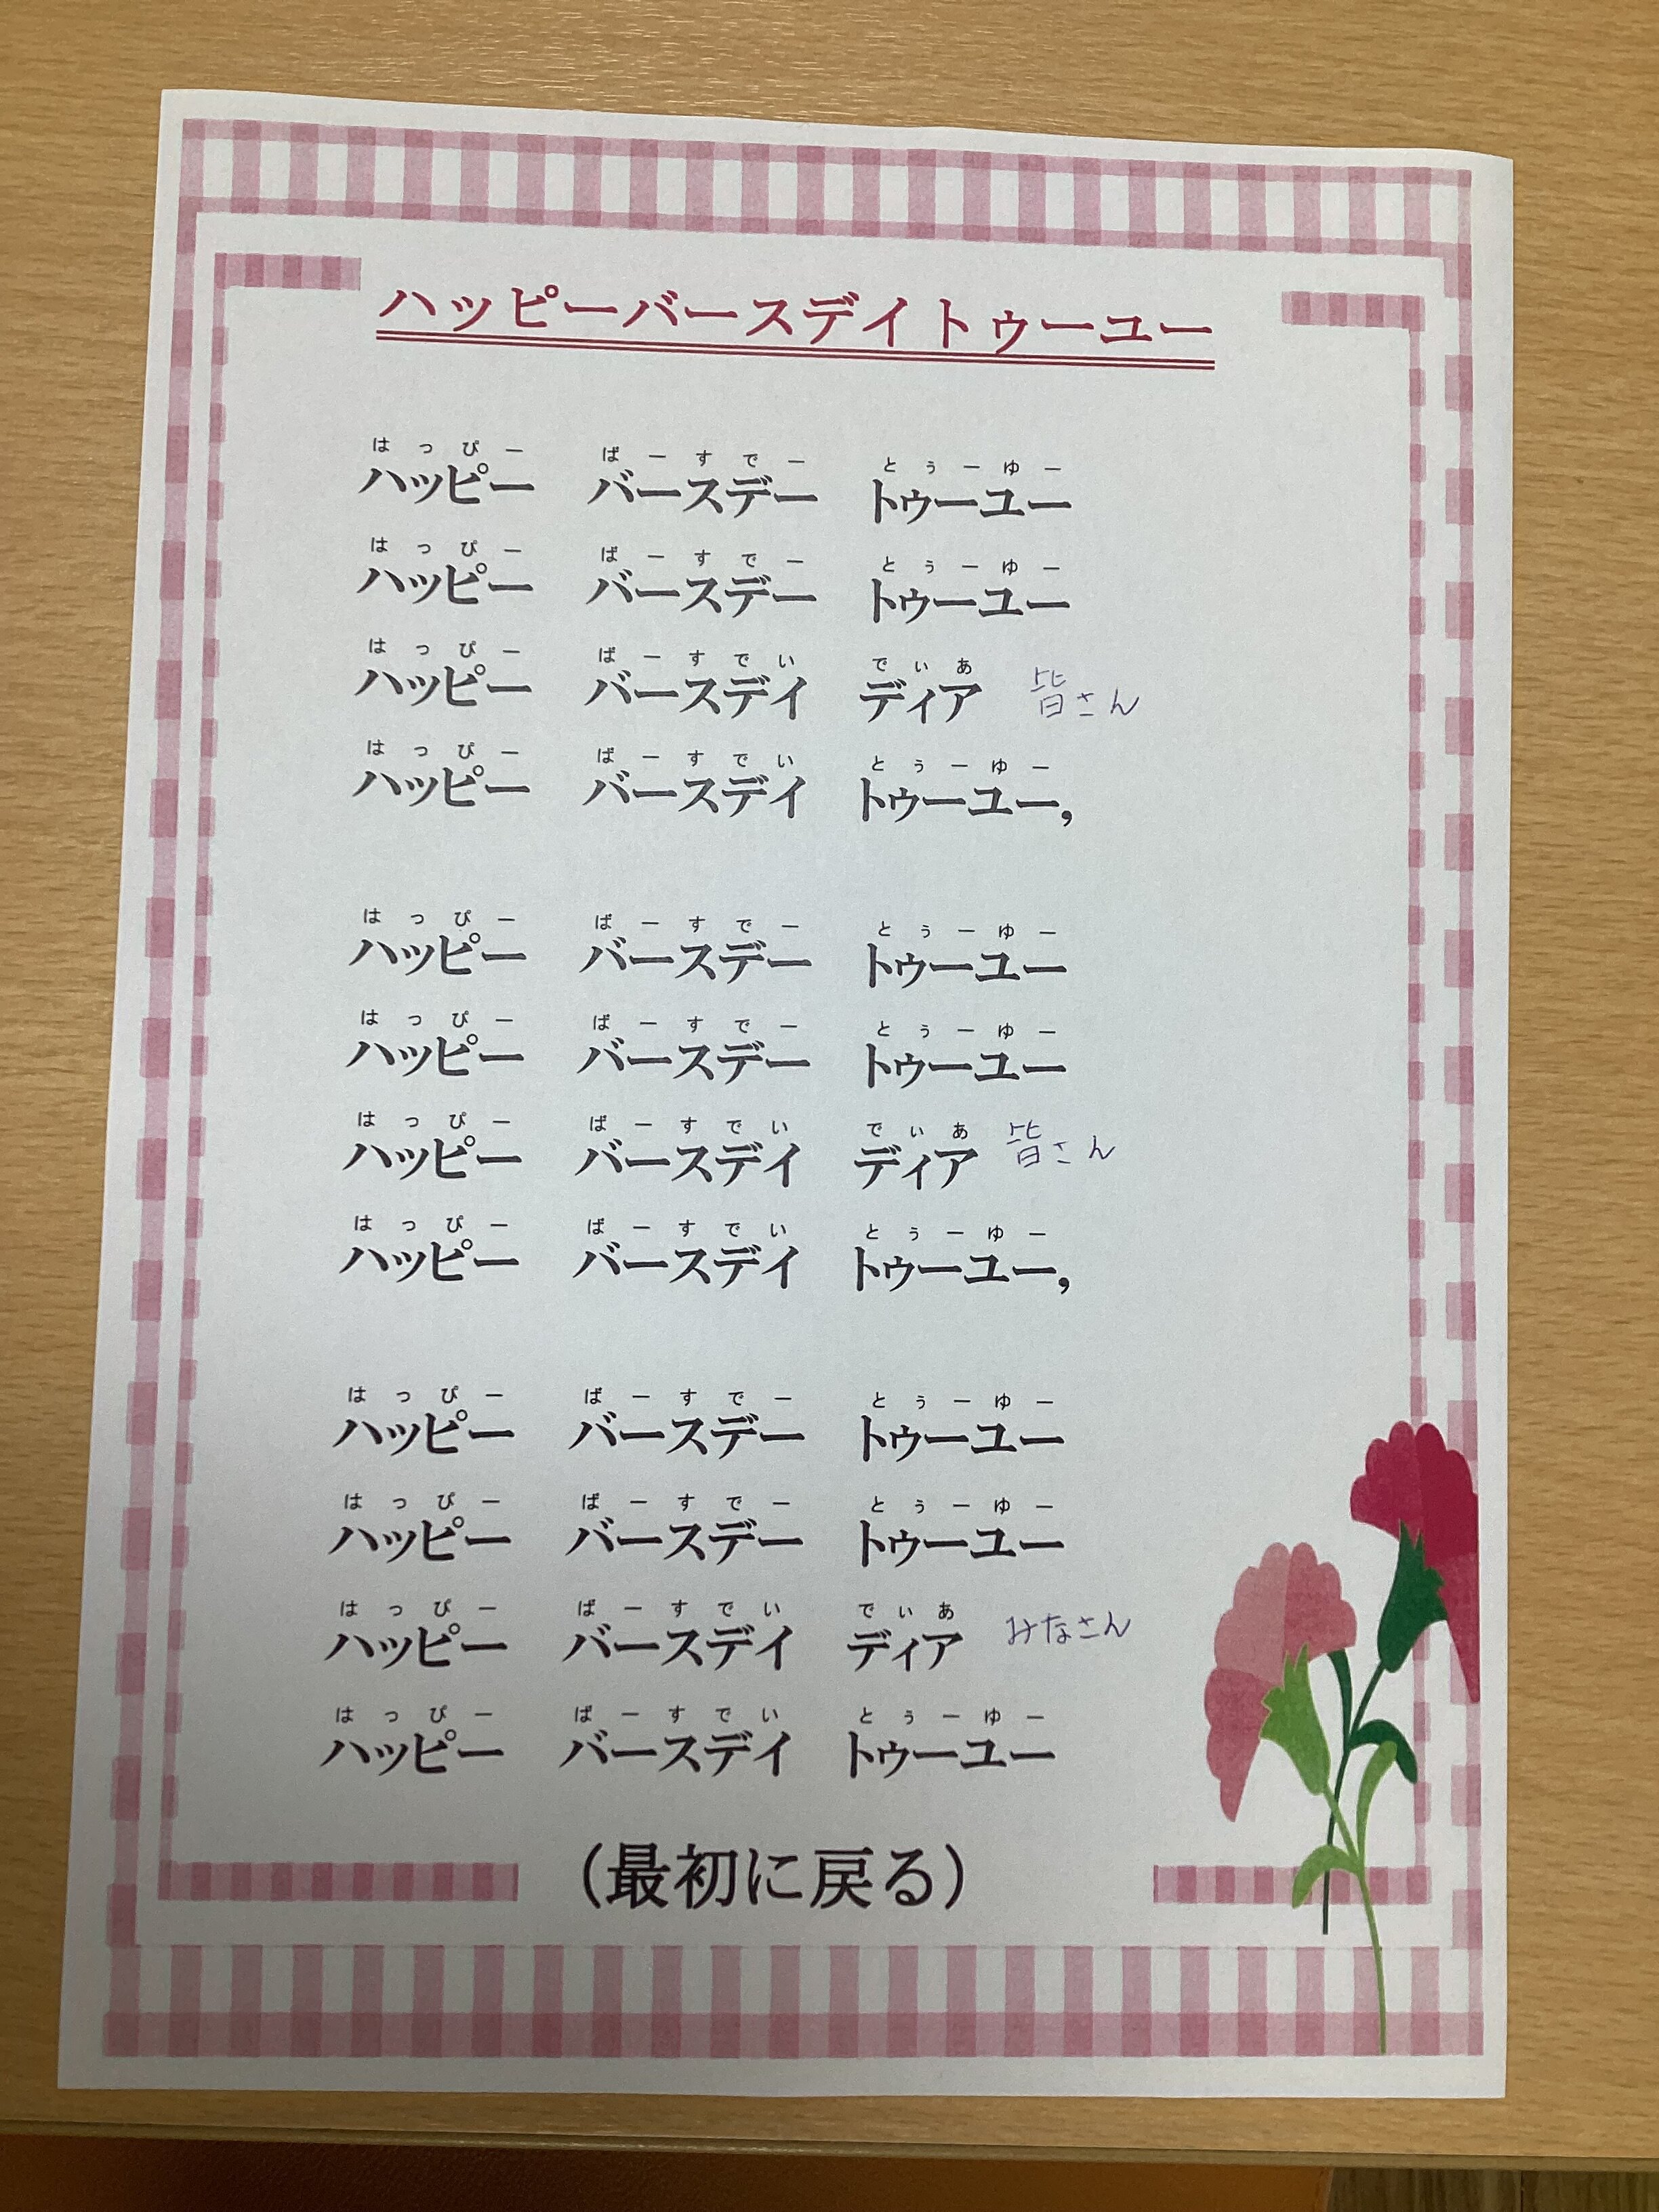 ハッピーバースデイトゥーユー
はっぴー ばーすでー とぅーゆー
ハッピー バースデー トゥーユー
はっぴー ばーすでー とぅーゆー
ハッピー バースデー トゥーユー
はっぴー ばーすでい でぃあ
ハッピー バースデイ ディア 皆さん
はっぴー ばーすでい とぅーゆー
ハッピー バースデイ トゥーユー,
はっぴー ばーすでー とぅーゆー
ハッピー バースデー トゥーユー
はっぴー ばーすでー とぅーゆー
ハッピー バースデー トゥーユー
はっぴー ばーすでい でぃあ
ハッピー バースデイ ディア 皆さん
はっぴー ばーすでい とぅーゆー
ハッピー バースデイ トゥーユー,
はっぴー ばーすでー とぅーゆー
ハッピー バースデー トゥーユー
はっぴー ばーすでー とぅーゆー
ハッピー バースデー トゥーユー
はっぴー ばーすでい でぃあ
ハッピー バースデイ ディア みなさん
はっぴー ばーすでい とぅーゆー
ハッピー バースデイ トゥーユー
（最初に戻る）